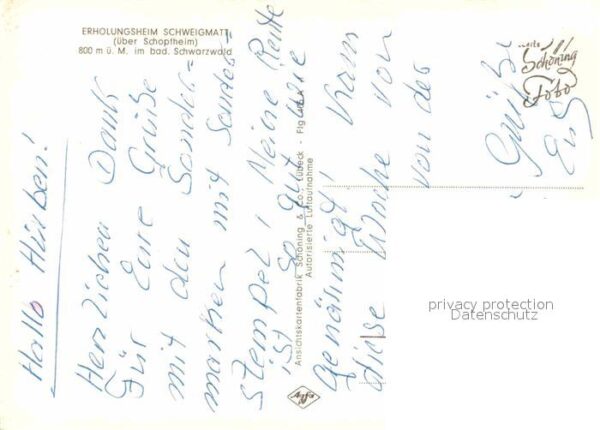 ERHOLUNGSHEIM SCHWEIGMATT
(über Schopfheim)
800 m ü. M. im bad. Schwarzwald
Hallo
Herzlichen Dank
Für Eure Grüße
mit den Sonder-
marken mit Sonder-
stempel! Meine Rente
ist so gut wie
genämigt! Kam
diese Woche von
von der
Grüße
Ansichtskartenfabrik Schöning & Co · Lübeck ·
Autorisierte Luftaufnahme
Schöning
Foto
Agfa
privacy protection
Datenschutz